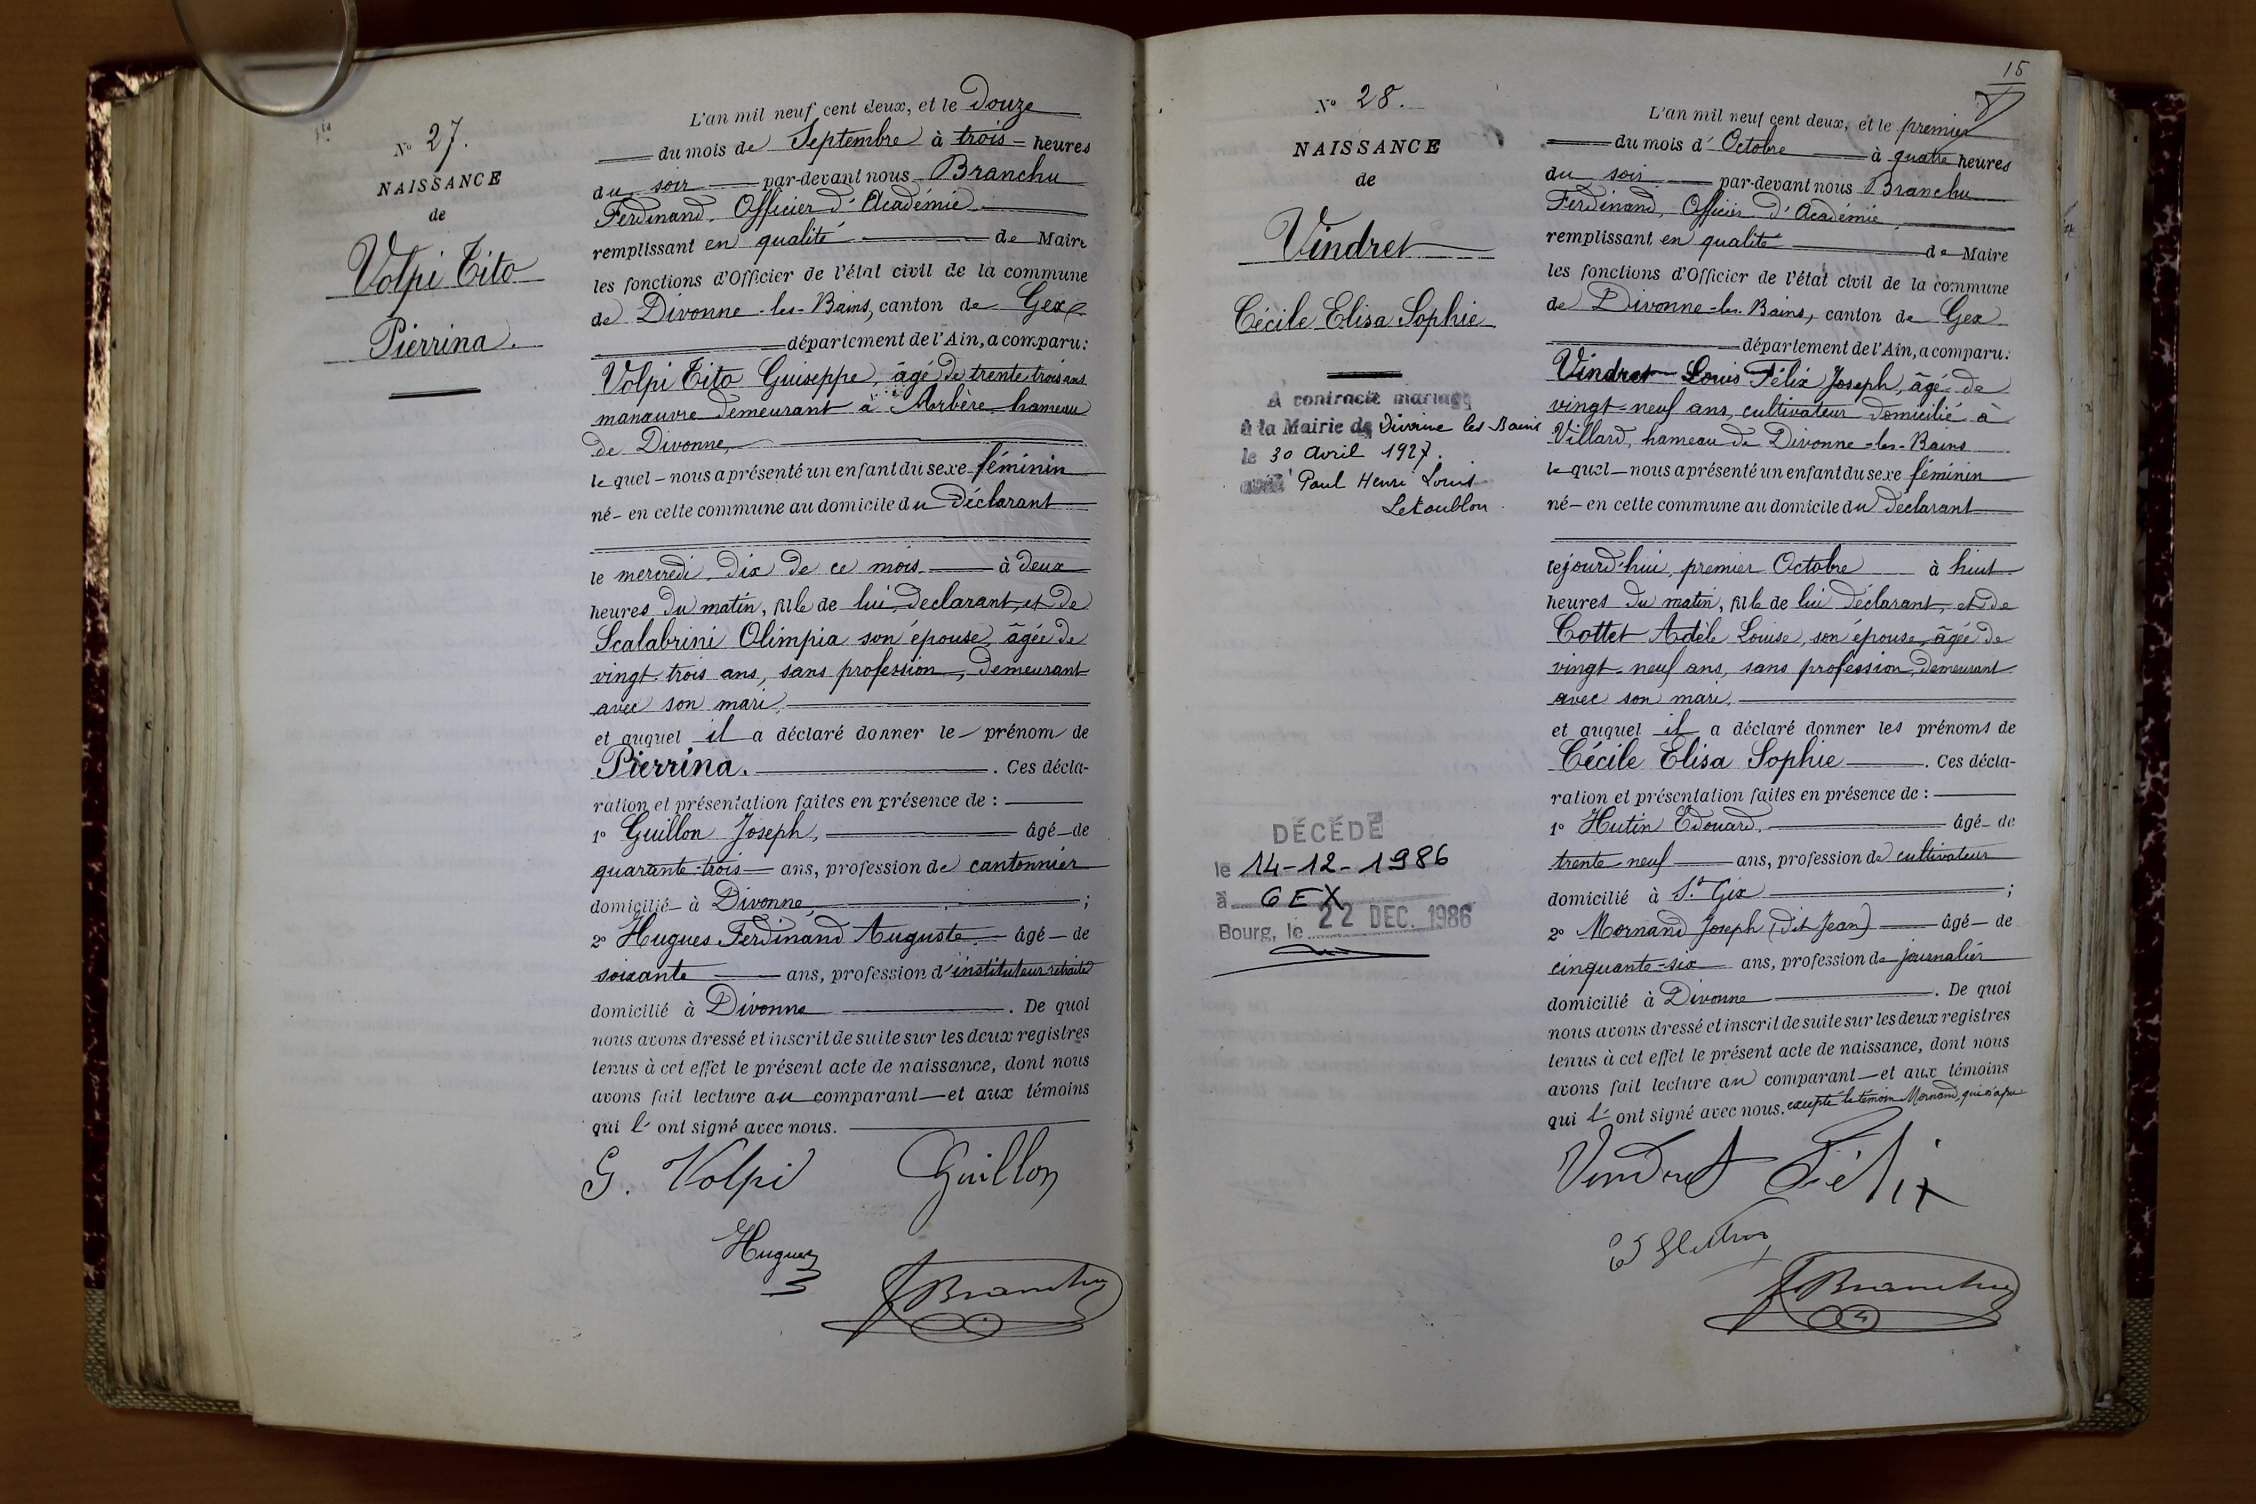 N° 27.
NAISSANCE
de
Volpi Tito
Pierrina.
L'an mil neuf cent deux, et le Douze
du mois de Septembre à trois heures
du soir par-devant nous Branchu
Ferdinand, Officier d'Académie
remplissant en qualité de Maire
les fonctions d'Officier de l'état civil de la commune
de Divonne-les-Bains, canton de Gex
département de l'Ain, a comparu:
Volpi Tito Guiseppe, âgé de trente trois ans
manœuvre demeurant à Arbère hameau
de Divonne,
le quel nous a présenté un enfant du sexe féminin
né en cette commune au domicile du Déclarant
le mercredi, dix de ce mois à deux
heures du matin, fille de lui déclarant, et de
Scalabrini Olimpia son épouse, âgée de
vingt trois ans, sans profession, demeurant
avec son mari,
et auquel il a déclaré donner le prénom de
Pierrina. . Ces décla-
ration et présentation faites en présence de :
1° Guillon Joseph, âgé de
quarante-trois ans, profession de cantonnier
domicilié à Divonne, ;
2° Hugues Ferdinand Auguste âgé de
soixante ans, profession d'instituteur retraité
domicilié à Divonne . De quoi
nous avons dressé et inscrit de suite sur les deux registres
tenus à cet effet le présent acte de naissance, dont nous
avons fait lecture au comparant et aux témoins
qui l' ont signé avec nous.
G. Volpi Guillon
Hugues
F Branchu
15
N° 28.
NAISSANCE
de
Vindret
Cécile Elisa Sophie
A contracté mariage
à la Mairie de Divonne les Bains
le 30 avril 1927.
avec Paul Henri Louis
Letoublon.
DÉCÉDÉ
le 14-12-1986
à GEX
Bourg, le 22 DEC. 1986
L'an mil neuf cent deux, et le premier
du mois d'Octobre à quatre heures
du soir par-devant nous Branchu
Ferdinand, Officier d'Académie,
remplissant en qualité de Maire
les fonctions d'Officier de l'état civil de la commune
de Divonne-les-Bains, canton de Gex
département de l'Ain, a comparu:
Vindret Louis Félix Joseph, âgé de
vingt-neuf ans, cultivateur domicilié à
Villard, hameau de Divonne-les-Bains
le quel nous a présenté un enfant du sexe féminin
né en cette commune au domicile du déclarant
cejourd'hui, premier Octobre à huit
heures du matin, fille de lui déclarant, et de
Cottet Adèle Louise, son épouse, âgée de
vingt-neuf ans, sans profession, demeurant
avec son mari,
et auquel il a déclaré donner les prénoms de
Cécile Elisa Sophie . Ces décla-
ration et présentation faites en présence de :
1° Hutin Edouard, âgé de
trente-neuf ans, profession de cultivateur
domicilié à St Gix ;
2° Mornand Joseph (dit Jean) âgé de
cinquante-six ans, profession de journalier
domicilié à Divonne . De quoi
nous avons dressé et inscrit de suite sur les deux registres
tenus à cet effet le présent acte de naissance, dont nous
avons fait lecture au comparant et aux témoins
qui l' ont signé avec nous. excepté le témoin Mornand, qui n'a pu
Vindret Félix
F Branchu